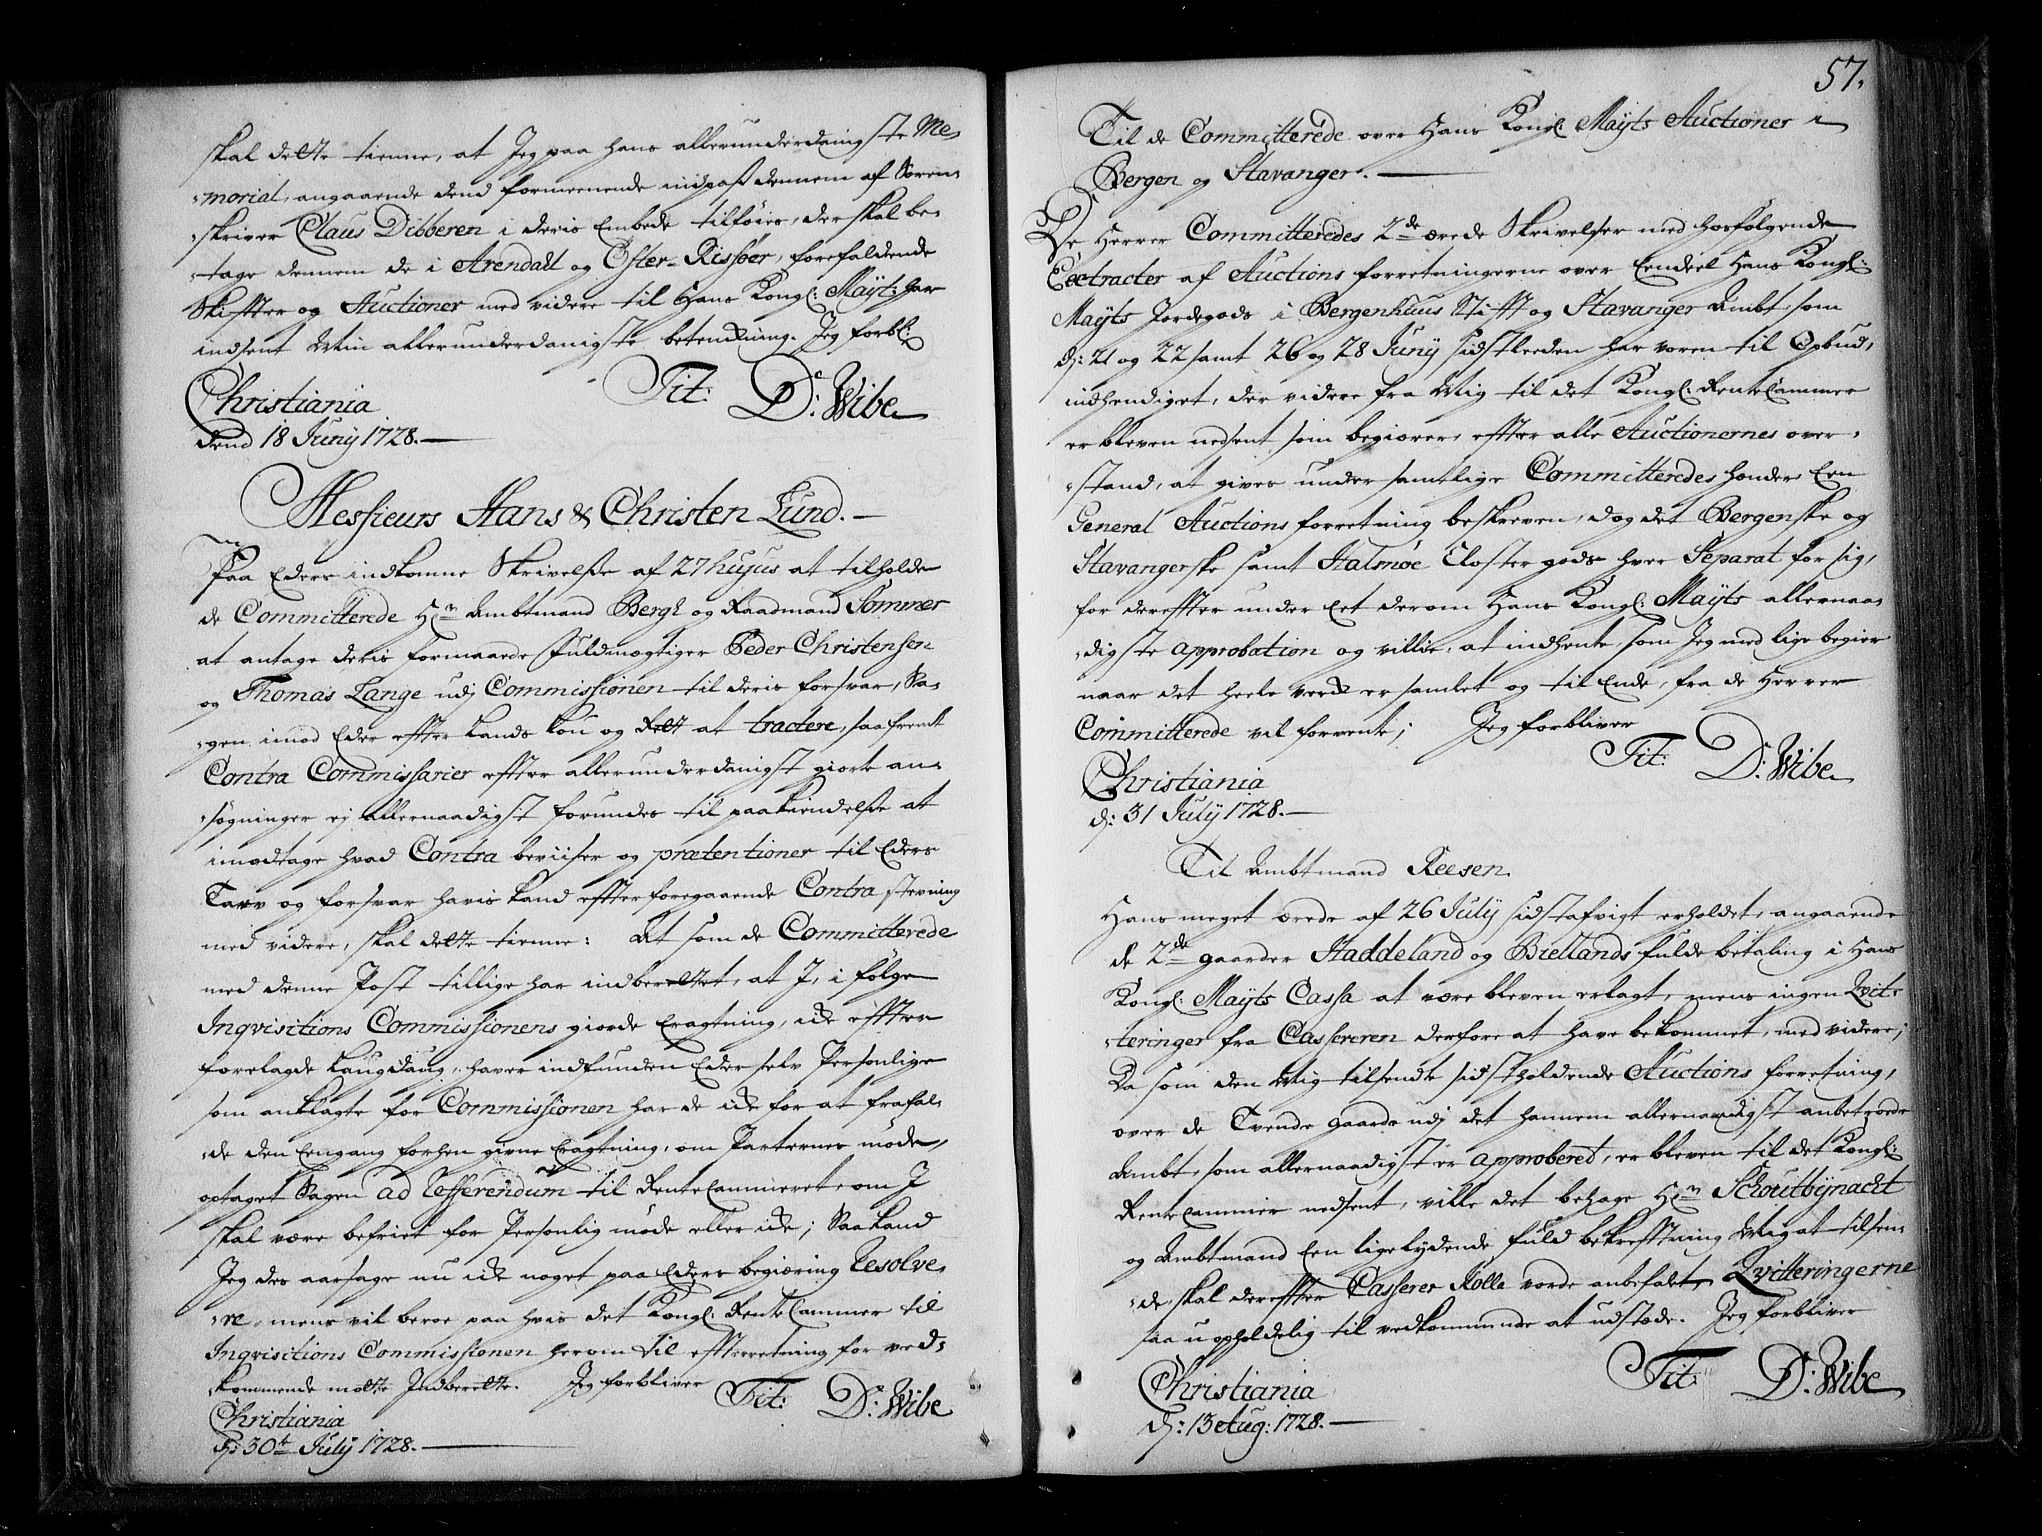 skal dette tienne, at Jeg paa hans allerunderdanigste Me-
-morial, angaaende dend formeenende indpas dennem af Soren-
-skriver Claus Dibberen i deris Embede tilføies, der skal be-
-tage dennem de i Arendall og Öster-Rissöer, forefaldende
Skiffter og Auctioner med videre til Hans Kongl: Mayts: har
indsent Min allerunderdanigste betenkning. Jeg forbl:
Tit: D: Wibe
Christiania
dend 18 Juny 1728.
Messieurs Hans & Christen Lund.
Paa Eders indkomne Skrivelse af 27 hujus at tilholde
de Committerede Hr Ambtmand Bergh og Raadmand Sommer
at antage deris formaaede Fuldmegtiger Peder Christensen
og Thomas Lange udj Commissionen til deris forsvar, Sa-
-gen imod Eder effter Lands Lou og Rett at tractere, saa fremt
Contra Commissarier effter allerunderdanigst giorte an-
-søgninger ej allernaadigst forundes til paakiendelse at
imodtage hvad Contra beviiser og prætentioner til Eders
Tarv og forsvar havis kand effter foregaaende Contra stevning
med videre, skal dette tienne: At som de Committerede
med denne Post tillige har indberettet, at I, i følge
Inqvisitions Commissionens giorde Eragtning, icke effter
forelagde Laugdaug, haver indfunden Eder selv Personlige
som anklagte for Commissionen har de icke for at frafal-
-de den Eengang forhen givne Eragtning, om Parternes møde,
optaget Sagen ad Refferendum til RenteCammeret, om I
skal være befriet for Personlig møde eller icke; Saa kand
Jeg des aarsage nu icke noget paa Eders begiæring Resolve-
-re, mens vil beroe paa hvis det Kongl: RenteCammer til
Inqvisitions Commissionen herom til effterretning for ved-
-kommende motte Indberette. Jeg forbliver
Tit: D: Wibe
Christiania
d: 30te July 1728.
57.
Til de Committerede over Hans Kongl: Mayts Auctioner i
Bergen og Stavanger.
De Herrer Committeredes 2de ærede Skrivelser med hosfølgende
Extracter af Auctions forretningerne over Eendeel Hans Kongl:
Mayts Jordegods i Bergenhuus Stifft og Stavanger Ambt, som
d: 21 og 22 samt 26 og 28 Juny sidstleeden har voren til Opbud,
indhendiget, der videre fra Mig til det Kongl: RenteCammer
er bleven nedsent, som begiærer, effter alle Auctionernes over-
-stand, at gives under samtlige Committeredes hænder Een
General Auctions forretning beskreven, dog det Bergenske og
Stavangerske samt Halsnöe Closter gods hver Separat for sig,
for dereffter under Eet derom Hans Kongl: Mayts allernaa-
-digste approbation og villie, at indhente, som Jeg med lige begier
naar det heele verk er samlet og til Ende, fra de Herrer
Committerede vil forvente; Jeg forbliver
Tit: D: Wibe
Christiania
d: 31 July 1728.
Til Ambtmand Reesen
Hans meget ærede af 26 July sidst afvigt erholdet, angaaende
de 2de gaarder Haddeland og Biellands fulde betaling i Hans
Kongl: Mayts Cassa at være bleven erlagt, mens ingen Qvit-
-teringer fra Cassereren derfore at have bekommet, med videre;
Da som den Mig tilsendte sidstholdende Auctions forretning,
over de Tvende gaarde udj det hannem allernaadigst anbetroede
Ambt, som allernaadigst er approberet, er bleven til det Kongl:
RenteCammer nedsent, ville det behage Hr Schoutbynacht
og Ambtmand Een ligelydende fuld bekrefftning Mig at tilsen-
-de, skal dereffter Casserer Rolle vorde anbefalet, Qvitteringerne
saa uopholdelig til vedkommende at udstæde. Jeg forbliver
Tit: D: Wibe
Christiania
d: 13 Aug: 1728.